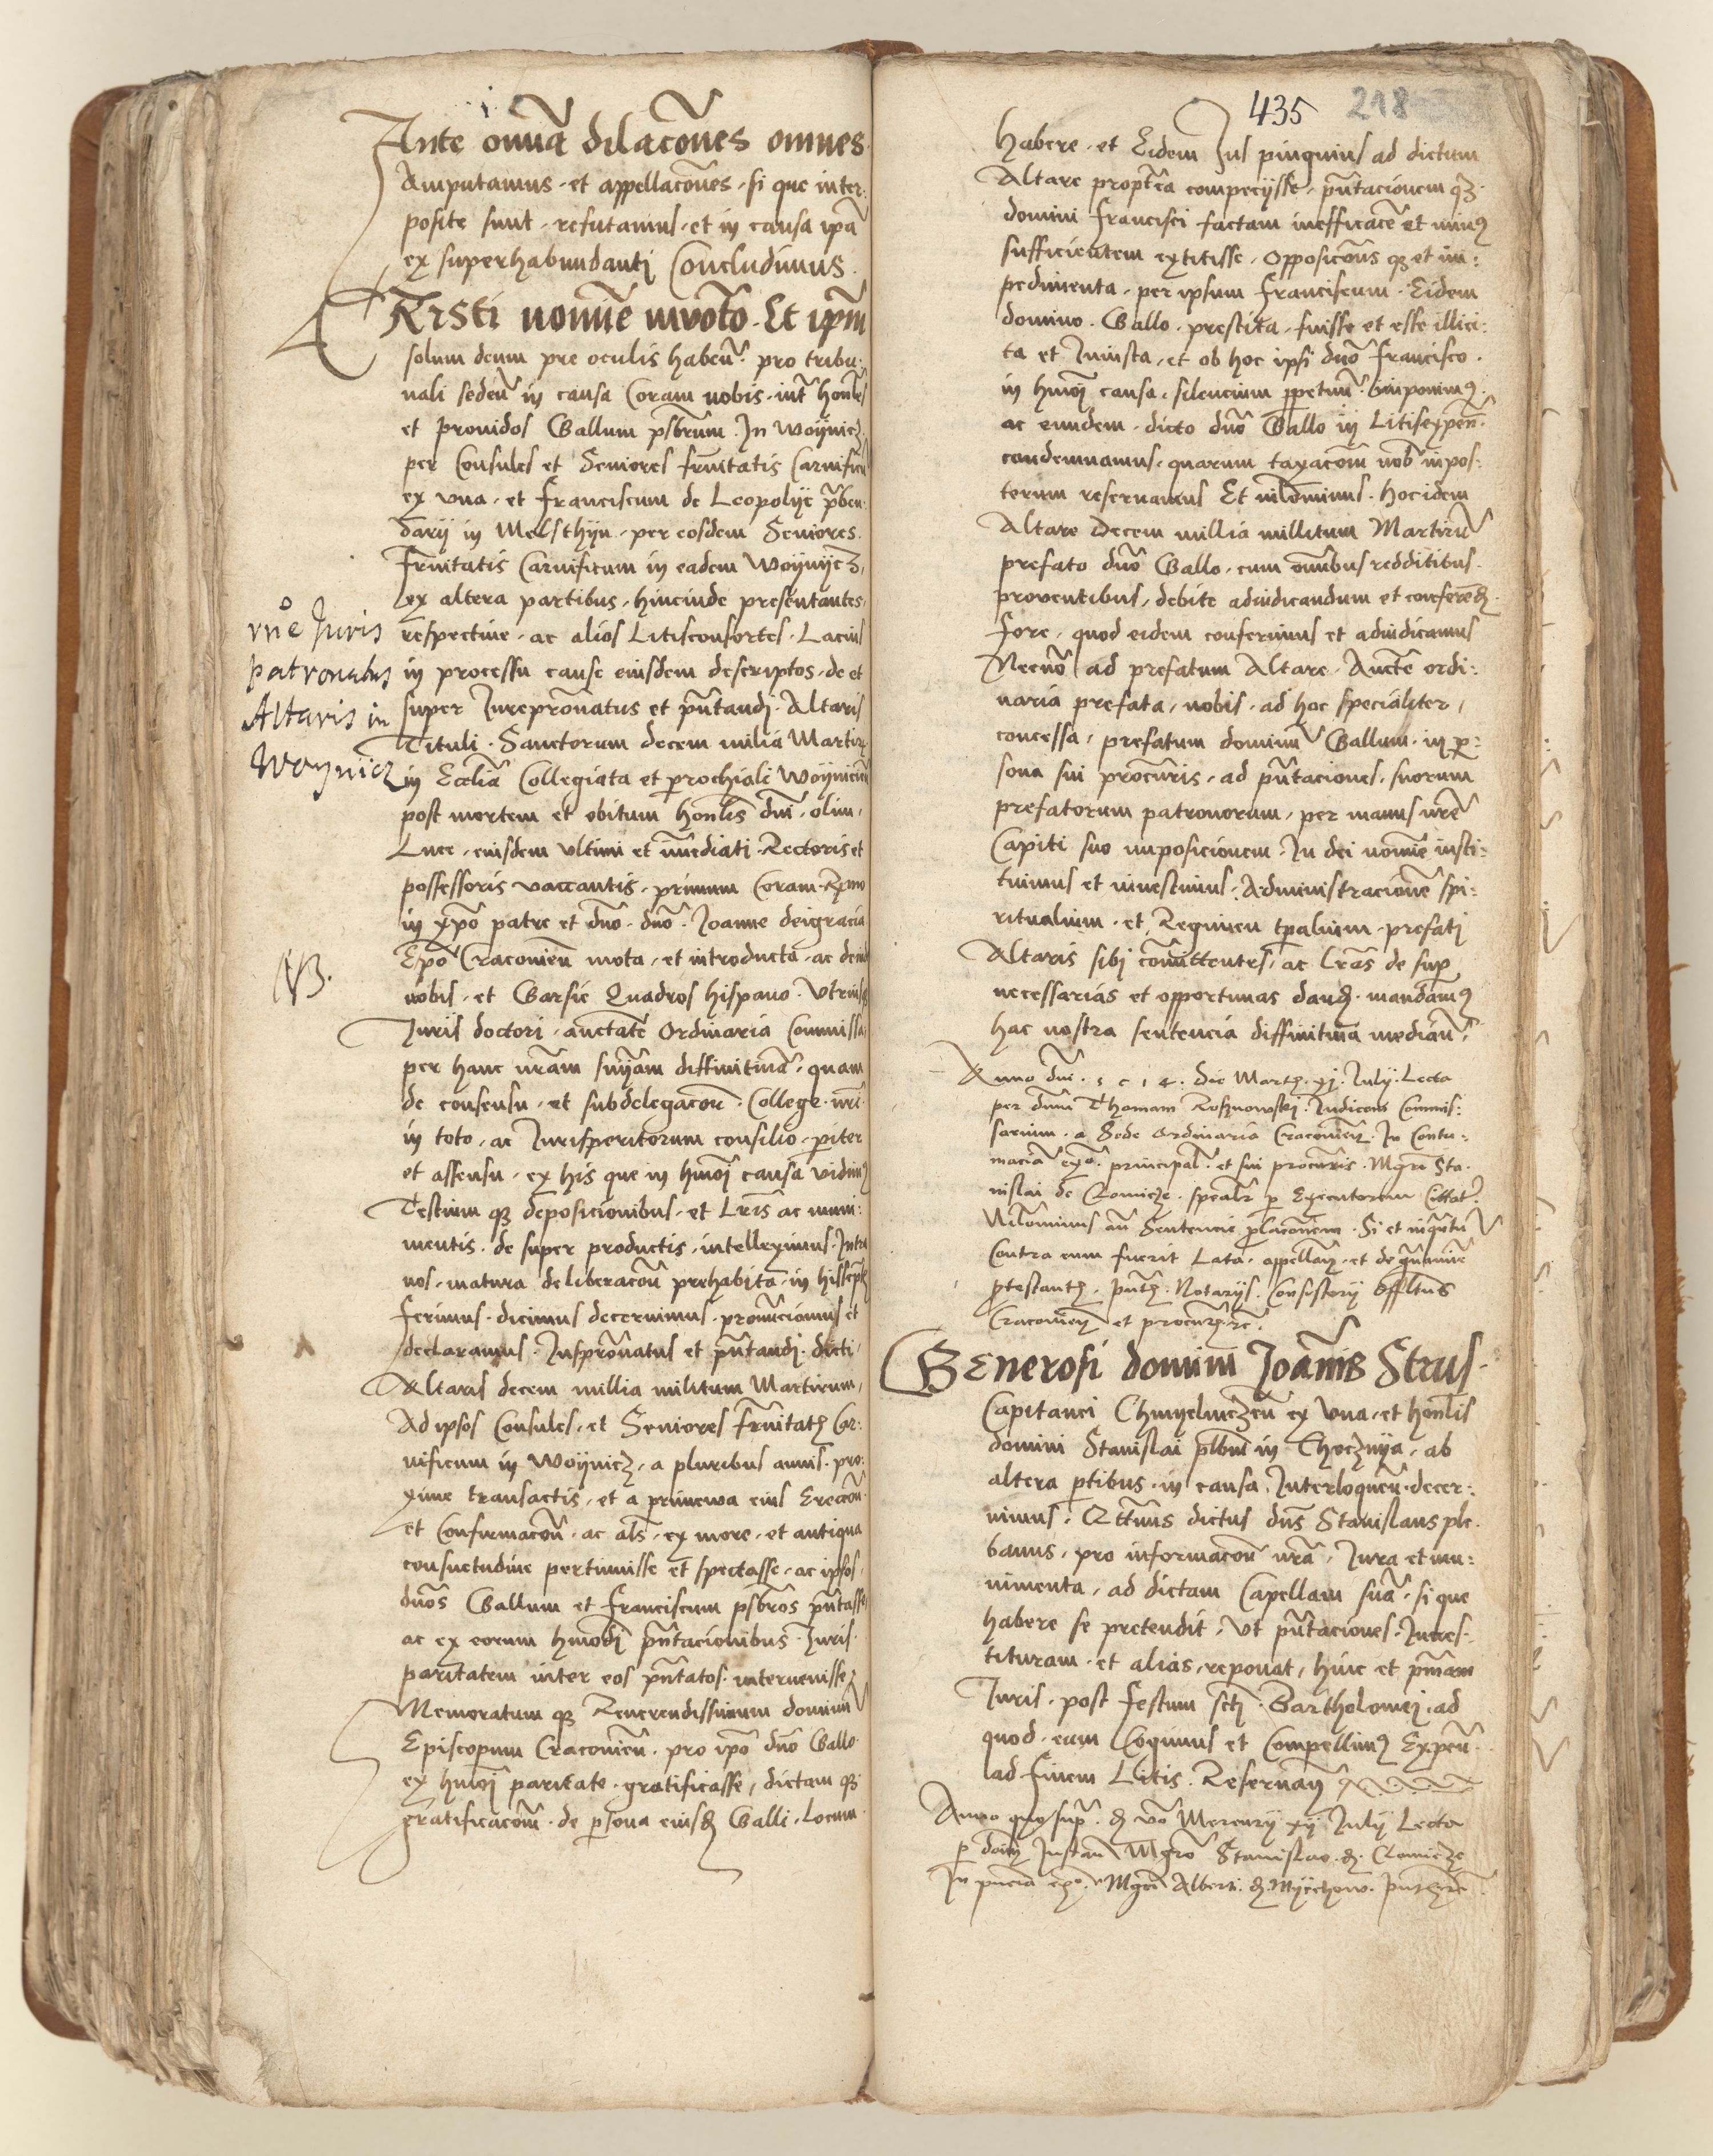 Ante om̃ia dilacões omnes
Amputamus · et appellacões · si que inter:
posite sunt · refutamus · et in causa ip̃a
ex superhabundanti Concludimus .
Xr̃isti nomi͂e invocato · Et ip̃m
solum deum pre oculis habeñ · pro tribu:
nali sedeñ in causa Coram nobis · int̃ hon̄les
et Providos Gallum pr̃sbrum · In Woynicz
per Consules et Seniores fr̃nitatis Carnificũ
ex vna · et Franciscum de Leopolije p̃ben:
darij in Melsthijn · per eosdem Seniores ·
Fr̃nitatis Carnificum in eadem Woijnijcz ,
ex altera partibus , hincinde presentantes ,
respective · ac alios Litisconsortes · Lacius
in processu cause eiusdem descriptos · de et
super Iurepr̃onatus et pñtandi · Altaris
Tituli · Sanctorum decem milia Martirũ
in Eccliã Collegiata et parochiali Woijnicieñ
post mortem et obitum hon̄lis dñi · olim ,
Luce , eiusdem vltimi et im̃ediati · Rectoris et
possessoris vaccantis , primum Coram · R̃mo
in xp̃o patre et dño · dño · Ioanne deigracia
Ep̃o Cracovieñ mota , et introducta · ac demũ
nobis · et Garsie Quadros hispano · Vtriusq̃
Iuris doctori · auctate Ordinaria Commissa
per hanc nr̃am sniãm diffinitivã , quam
de consensu · et subdelegacoñ · College · nr̃i
in toto , ac Iurisperitorum consilio , pariter
et assensu , ex his que in hmõi causa vidimus
Testium q̃ deposicionibus , et Lr̃is ac muni:
mentis · de super productis , intelleximus · Intra
nos , matura deliberacoñ prehabita · in his scriptis
ferimus · dicimus decernimus , pronũciamus et
declaramus · Iuspr̃onatus et pñtandi · dicti ,
Altaris decem millia militum Martirum ,
Ad ipsos Consules , et Seniores fr̃nitatis Car:
nificum in Woijnicz , a pluribus annis · pro:
xime transactis , et a primeva eius Erectoñ ·
et Confirmacoñ · ac als̃ · ex more , et antiqua
consuetudine pertinuisse et spectasse , ac ipsos ,
dños Gallum et Franciscum psbros pñtasse ,
ac ex eorum hmõdi pñtacionibus · Iuris ·
paritatem inter eos pñtatos · intervenisse ,
Memoratum q̃ Reverendissimum dominũ
Episcopum Cracovieñ · pro ip̃o dño Gallo
ex hmõi paritate · gratificasse , dictam q̃
gratificacoñ · de persona eiusd̃ Galli , locum
rñe Iuris
patronatus
Altaris in
Woynicz
NB.
435 218
habere · et Eidem Ius pinguius ad dictum
Altare propt̃ea competijsse , pñtacionem q̃
domini Francisci factam inefficacẽ et minus
sufficientem extitisse , Opposicões q̃ et im:
pedimenta , per ipsum Franciscum · Eidem
domino · Gallo , prestita , fuisse et esse illici:
ta et Iniusta , et ob hoc ipsi dño Francisco ·
in hmõi causa , silencium perpetuũ · imponimus ,
ac eundem , dicto dño Gallo in Litisexpeñ ·
condemnamus , quarum taxacoñ nob̃ inpos:
terum reservamus Et nil̃ominus · hoc idem
Altare Decem millia millitum Martirũ
prefato dño Gallo , cum om̃ibus reddititus ·
proventibus , debite adiudicandum et conferend̃ ·
fore , quod eidem conferimus et adiudicamus
Necnõ ad prefatum Altare · Aucte ordi:
naria prefata , nobis , ad hoc specialiter ,
concessa , prefatum dominũ Gallum , in per:
sona sui procuris , ad pñtaciones , suorum
prefatorum patronorum , per manus nr̃e
Capiti suo imposicionem · In dei nomi͂e insti:
tuimus et investimus , Administracionẽ spi:
ritualium · et Regimen tp̃alium · prefati
Altaris sibi com̃ittentes , ac Lr̃as de sup̃
necessarias et opportunas dand̃ · mandamus
hac nostra sentencia diffinitiva mediañ .
Anno dñi · 1 5 1 4 . die Martis · xj · Iulij · Lecta
per dñm Thomam Rosznowski · Iudicem Commis:
sarium · a Sede Ordinaria Cracovieñ · In Contu:
maciã ex̃ª · principal̃ · et sui procuris · Mgri Sta·
nislai de Clomicze · spealr̃ p̃ Executorem Cittat̃ ·
Nil̃ominus añ Sentencie p̃lacoñem · Si et inqñtũ
Contra eum fuerit Lata , appellañ · et de gr̃amine
protestantis , pñtib · Notarijs · Consistorij Offiltus
Cracovieñ et procurib · rc̃ .
Generosi domini Ioãnis Strus ·
Capitanei Chmyelniczeñ ex Vna , et hon̄lis
domini Stanislai plbni in Chocznya , ab
altera ptibus , in causa , Interloqueñ , decer:
nimus , Q̃ttinus dictus dñs Stanislaus ple·
banus , pro informacoñ nr̃a , Iura et mu:
nimenta , ad dictam Capellam suã , si que
habere se pretendit , Vt pñtaciones · Inves·
tituram · et alias , reponat , hinc et p̃mam
Iuris , post Festum scti · Bartholomei , ad
quod , eum Cogimus et Compellimus Expeñ ·
ad Finem Litis · Reservañ
Anno quo sup̃ · d̃ vo Mercurij xij Iulij Lecta
p̃ dominũ Instañ Mgro Stanislao · d̃ Clomicze
In pñcia ex̃ª · Mgri Alberti · d̃ Myechow · pñtib rc̃ .